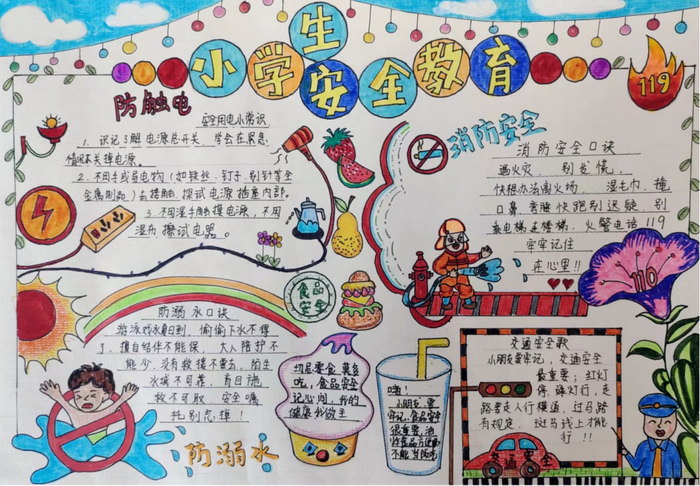 小学生
安全教育
119
防触电
安全用电小常识
1、识记了解电源总开关，学会在紧急
情况下关掉电源。
2、不用手或导电物（如铁丝、钉子、别针等
金属制品）去接触、探试电源插座内部。
3、不用湿手触摸电源，不用
湿布擦试电器。
消防安全
消防安全口诀
遇火灾，别发慌，
快想办法离火场，湿毛巾，掩
口鼻，弯腰快跑别迟疑，别
乘电梯走楼梯，火警电话119
牢牢记住
在心里！！
110
防溺水口诀
游泳戏水夏日到，偷偷下水不得
了，擅自结伴不能保，大人陪护不
能少，没有救援不要去，陌生
水域不可靠，盲目施
救不可取，安全嘱
托别忘掉！
防溺水
食品
安全
吃，食品安全
记心间，我的
健康我做主
嗨！
小朋友，要
牢记，食品安全
很重要，油
炸食品方便面
不能当饭吃
交通安全歌
小朋友要牢记，交通安全
最重要；红灯
停，绿灯行，走
路要走人行横道，过马路
有规定，斑马线上才能
行！！
交通安全